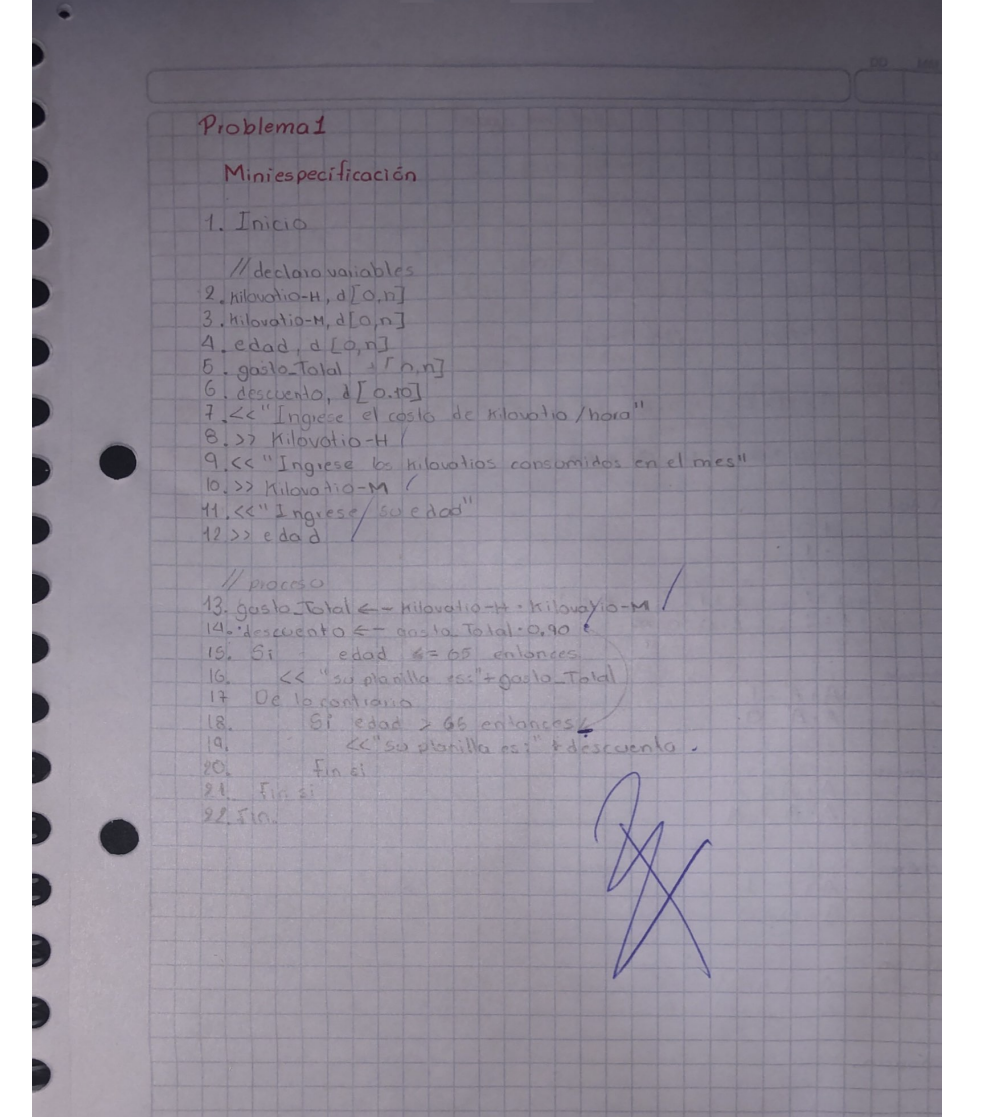 Problema 1
Miniespecificación
1. Inicio
// declaro variables
2. Kilovatio-H, d[0,n]
3. Kilovatio-M, d[0,n]
4. edad, d[0,n]
5. gasto_Total [0,n]
6. descuento, d[0.10]
7. << "Ingrese el costo de Kilovatio/hora"
8. >> Kilovatio-H
9. << "Ingrese los Kilovatios consumidos en el mes"
10. >> Kilovatio-M
11. << "Ingrese su edad"
12 >> edad
// proceso
13. gasto_Total <- Kilovatio-H * Kilovatio-M
14. descuento <- gasto_Total * 0.90
15. Si edad <= 65 entonces
16. << "su planilla es:" + gasto_Total
17 De lo contrario
18. Si edad > 65 entonces
19. << "su planilla es:" + descuento.
20. fin si
21. Fin si
22. Fin.